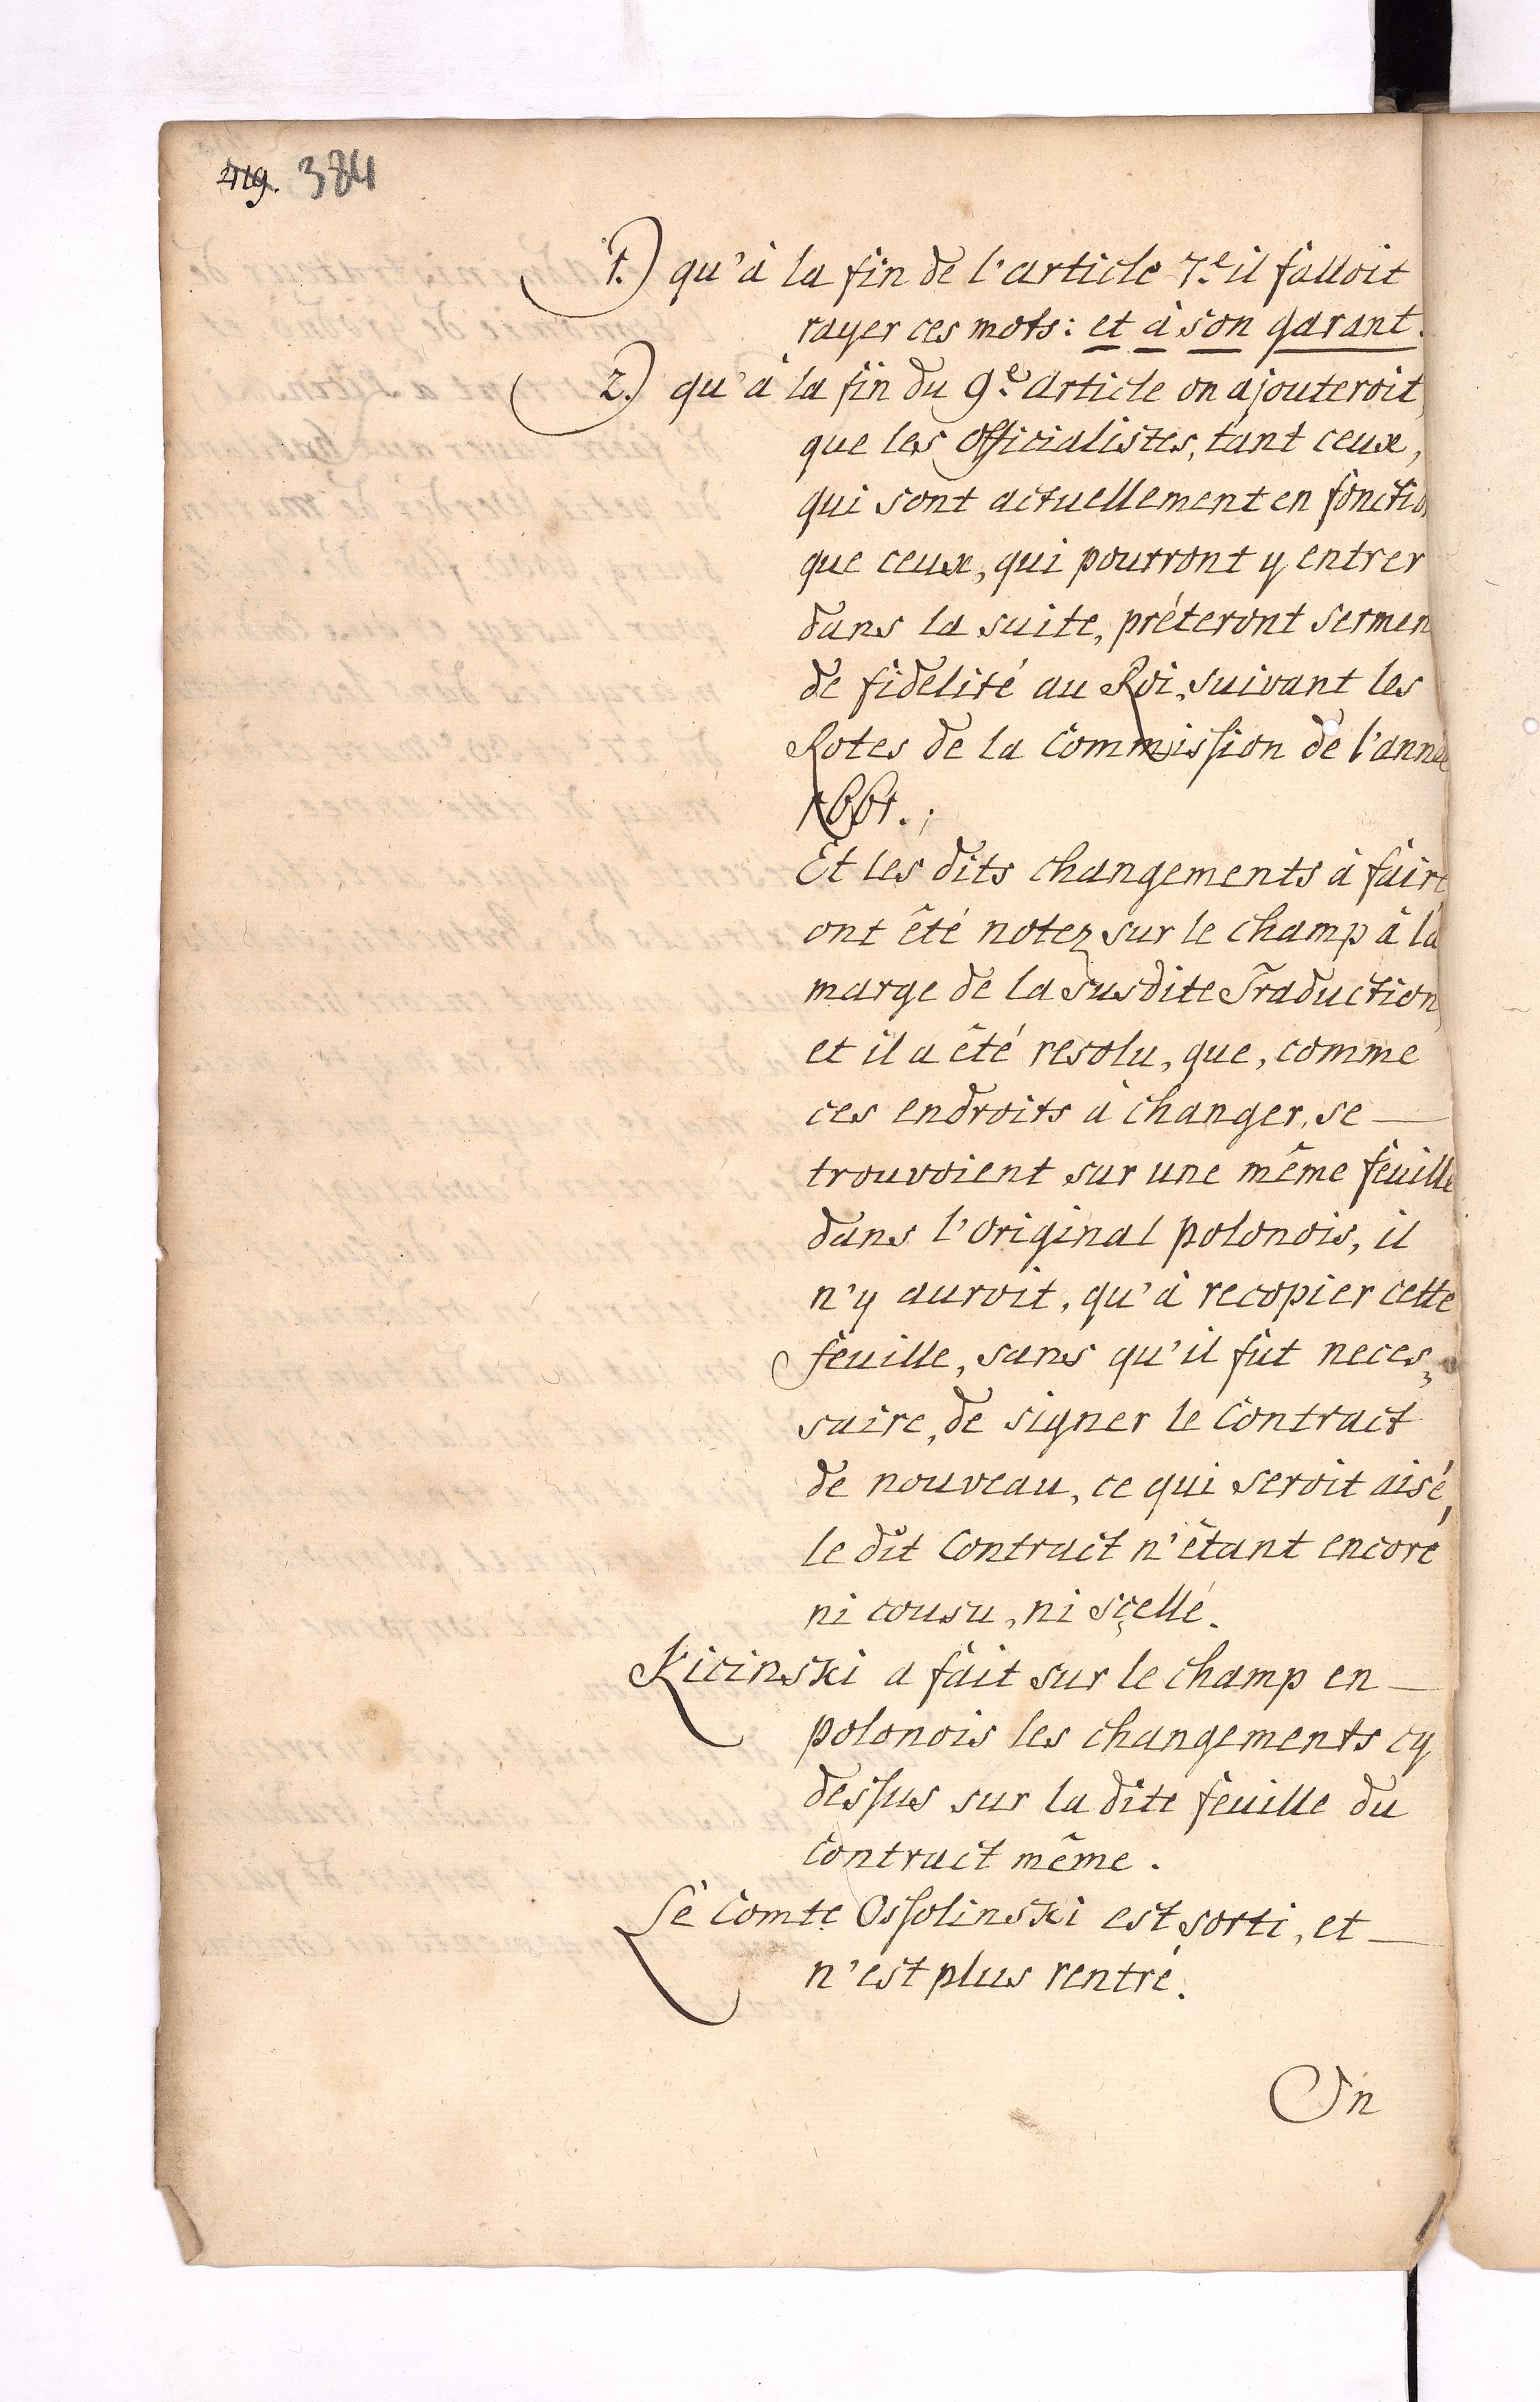 384
1.) qu'à la fin de l'article 7.e il falloit
rayer ces mots: et à son garant.
2.) qu'à la fin du 9.e article on ajouteroit,
que les Officialistes, tant ceux,
qui sont actuellement en fonctio
que ceux, qui pourront y entrer
dans la suite, préteront sermen
de fidelité au Roi, suivant les
Rotes de la Commission de l'année
1661.;
Et les dits changements à faire
ont êté notez sur le champ à la
marge de la susdite Traduction,
et il a êté resolu, que, comme
ces endroits à changer, se
trouvoient sur une même feuille
dans l'original polonois, il
n'y auroit, qu'à recopier cette
feuille, sans qu'il fut neces=
saire, de signer le Contract
de nouveau, ce qui seroit aisé,
le dit Contract n'étant encore
ni cousu, ni sçellé.
Kicinski a fait sur le champ en
polonois les changements cy
dessus sur la dite feuille du
Contract même.
Le Comte Ossolinski est sorti, et
n'est plus rentré.
On